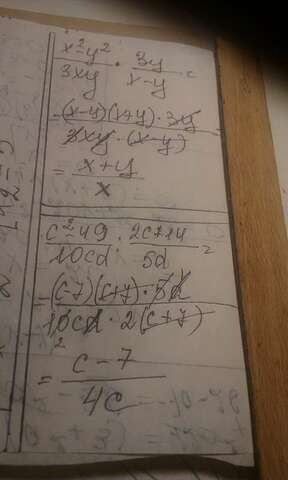 x²-y²/3xy · 3y/x-y =
= (x-y)(x+y)·3y/3xy·(x-y)
= x+y/x
c²-49/10cd : 2c+14/5d =
= (c-7)(c+7)·5d/10cd·2(c+7)
2
= c-7/4c